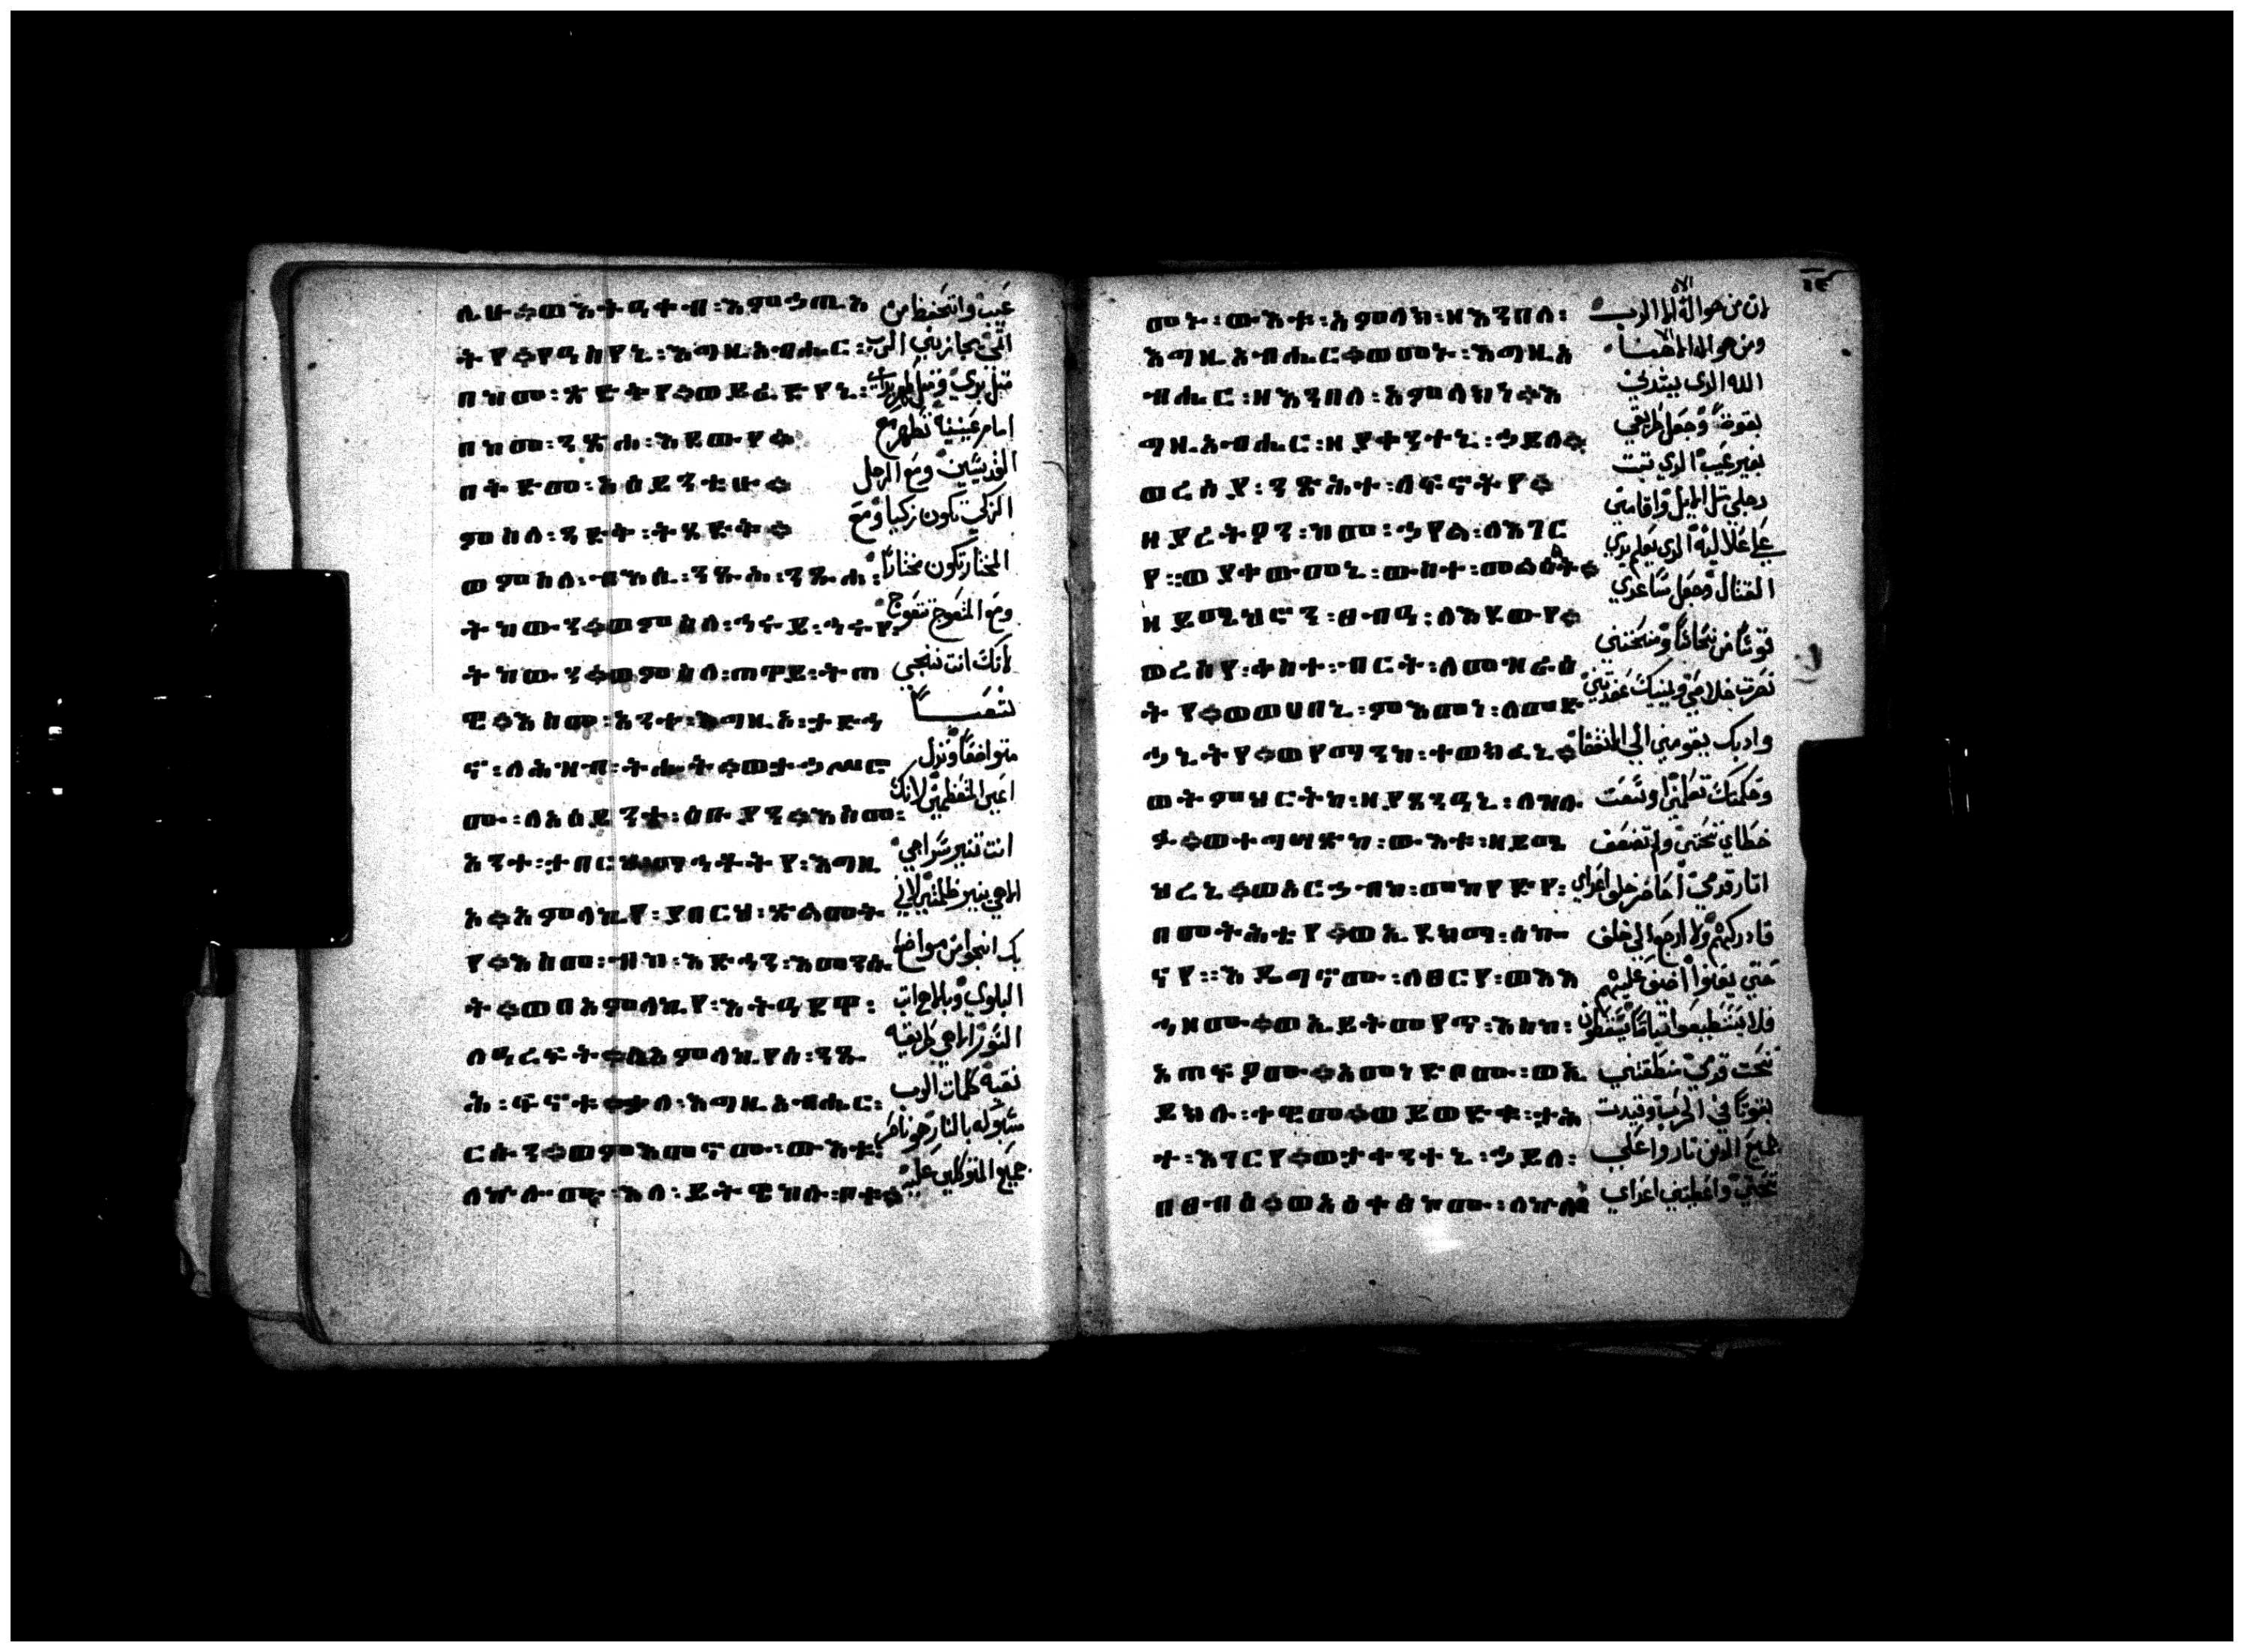 ሌሁ፨ወእትዓቀብ፡እምኃጢአ
ትየ፨የዓስየኒ፡እግዚአብሔር፡
በከመ፡ጽድቅየ፨ወይፈድየኒ፡
በከመ፡ንጽሐ፡እደውየ፨
በቅድመ፡አዕይንቲሁ፨
ምስለ፡ጻድቅ፡ትጸድቅ፨
ወምስለ፡ብእሲ፡ንጹሕ፡ንጹሐ፡
ትከውን፨ወምስለ፡ኅሩይ፡ኅሩየ፡
ትከውን፨ወምስለ፡ጠዋይ፡ትጠ
ዊ፨እስመ፡አንተ፡እግዚአ፡ታድኅ
ኖ፡ለሕዝብ፡ትሑት፨ወታኃሥሮ
ሙ፡ለአዕይንተ፡ዕቡያን፨እስመ፡
አንተ፡ታበርህ፡ማኅቶትየ፡እግዚ
አ፨አምላኪየ፡ያበርህ፡ጽልመት
የ፨እስመ፡ብከ፡እድኅን፡እመንሱ
ት፨ወበአምላኪየ፡እትዓደዋ፡
ለዓረፍት፨ለአምላኪየሰ፡ንጹ
ሕ፡ፍኖቱ፨ቃለ፡እግዚአብሔር፡
ርሱን፨ወምእመኖሙ፡ውእቱ፡
ለኵሎሙ፡እለ፡ይትዌከሉ፡ቦቱ፨
عيب واتحفظ من
اثمي يجازيني الرب
مثل بري ومثل طهر يداي
امام عينيه تطهر مع
القديسين ومع الرجل
الزكي تكون زكيا ومع
المختار تكون مختارا
ومع المتعوج تتعوج
لانك انت تنجي
شعبا
متواضعا وتذل
اعين المتعظمين لانك
انت تنير سراجي
الاهي ينير ظلمتي لاني
بك انجوا من مواضع
البلوي وبالاهي اثب
السور الاهي طريقه
نقيه كلمات الرب
مسبوكه بالنار هو ناصر
جميع المتوكلين عليه
መኑ፡ውእቱ፡አምላክ፡ዘእንበለ፡
እግዚአብሔር፨ወመኑ፡እግዚአ
ብሔር፡ዘእንበለ፡አምላክነ፨እ
ግዚአብሔር፡ዘያቀንተኒ፡ኃይለ፨
ወረሰያ፡ንጹሕተ፡ለፍኖትየ፨
ዘያረትዖን፡ከመ፡ኃየል፡ለእገር
የ፡፡ወያቀውመኒ፡ውስተ፡መልዕልት፨
ዘይሜህሮን፡ፀብዓ፡ለእደውየ፨
ወረሰየ፡ቀስተ፡ብርት፡ለመዝራዕ
ትየ፨ወወሀበኒ፡ምእመነ፡ለመድ
ኃኒትየ፨ወየማንከ፡ተወክፈኒ፨
ወትምህርትከ፡ዘያጸንዓኒ፡ለዝሉ
ፉ፨ወተግሣጽከ፡ውእቱ፡ዘይሜ
ህረኒ፨ወአርኃብከ፡መከየድየ፡
በመትሕቴየ፨ወኢደክማ፡ሰኰ
ናየ፡፡እዴግኖሙ፡ለፀርየ፡ወእእ
ኅዞሙ፨ወኢይትመየጥ፡እስከ፡
አጠፍኦሙ፨አመነድቦሙ፡ወኢ
ይክሉ፡ተዊመ፨ወይወድቁ፡ታሕ
ተ፡እገርየ፨ወታቀንተኒ፡ኃይለ፡
በፀብዕ፨ወአዕቀፅኮሙ፡ለኵሎ
لان من هو اله الا الرب
ومن هو اله الا الاهنا
الله الذي يشدني
بقوه وجعل طريقي
بغير عيب الذي تبت
رجلي مثل الايل واقامني
علي العاليه الذي يعلم يدي
القتال وجعل ساعدي
قوسا من نحاسا ومنحتني
نصرت خلاصي ويمينك عضدتني
وادبك يقومني الي المنتها
وحكمتك تعلمني اوسعت
خطاي تحتي ولم تضعف
اثار قدمي اخاضر خلف اعداي
فادركهم ولا ارجع الي خلف
حتي يفنوا اضيق عليهم
فلا يستطيعوا ثباتا يسقطون
تحت قدمي منطقتني
بقوتا في الحرب وقيدت
جميع الذين ثاروا علي
تحتي واعطيتني اعداي